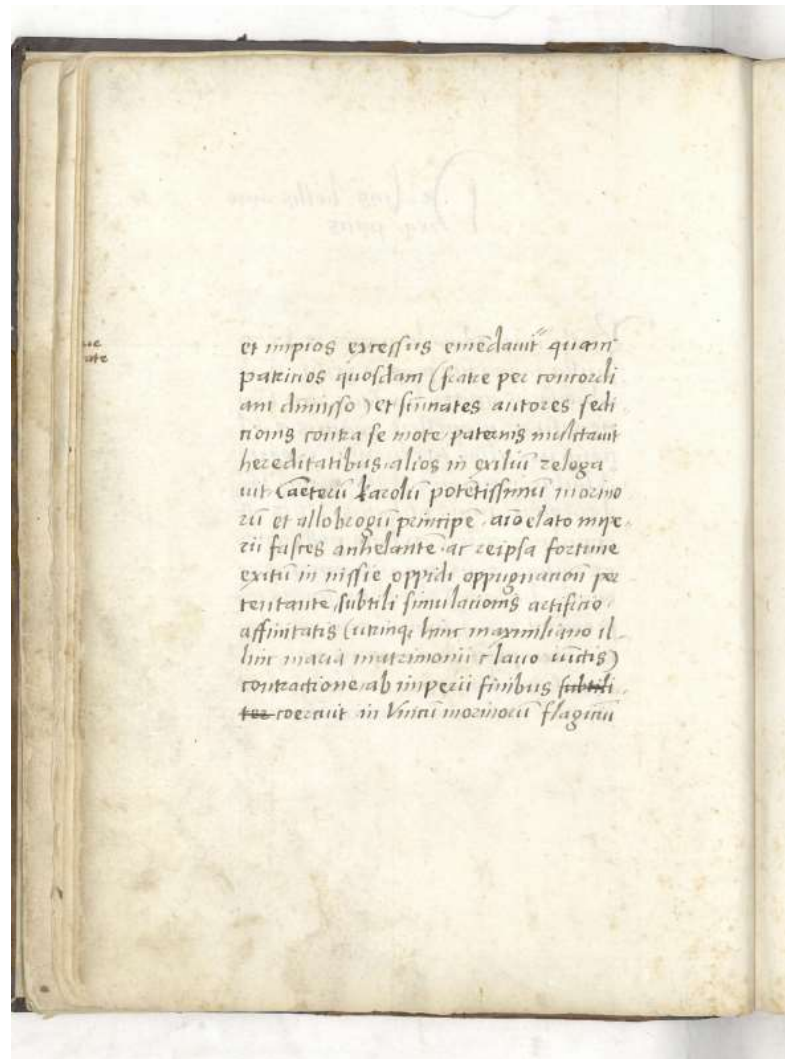 et impios excessus emēdauit quam
patricios quosdam (fratre per concordi
am dimisso) et su͞nates autores sedi
tionis contra se mote paternis mulctauit
hereditatibus alios in exiliū reloga
uit Caeterū karolū potētissimū morino
rū et allobrogū principē aīo elato impe
rii fasces anhelantē ac reipsa fortune
exitū in nissie oppidi oppugnationi per
tentantē subtili simulationis artificio
affinitatis (utrinq hinc maximiliano il
hinc maria matrimonii clauo uīctis)
contractione ab imperii finibus subtili
ter coercuit in Vnicū morinorū flagitiū